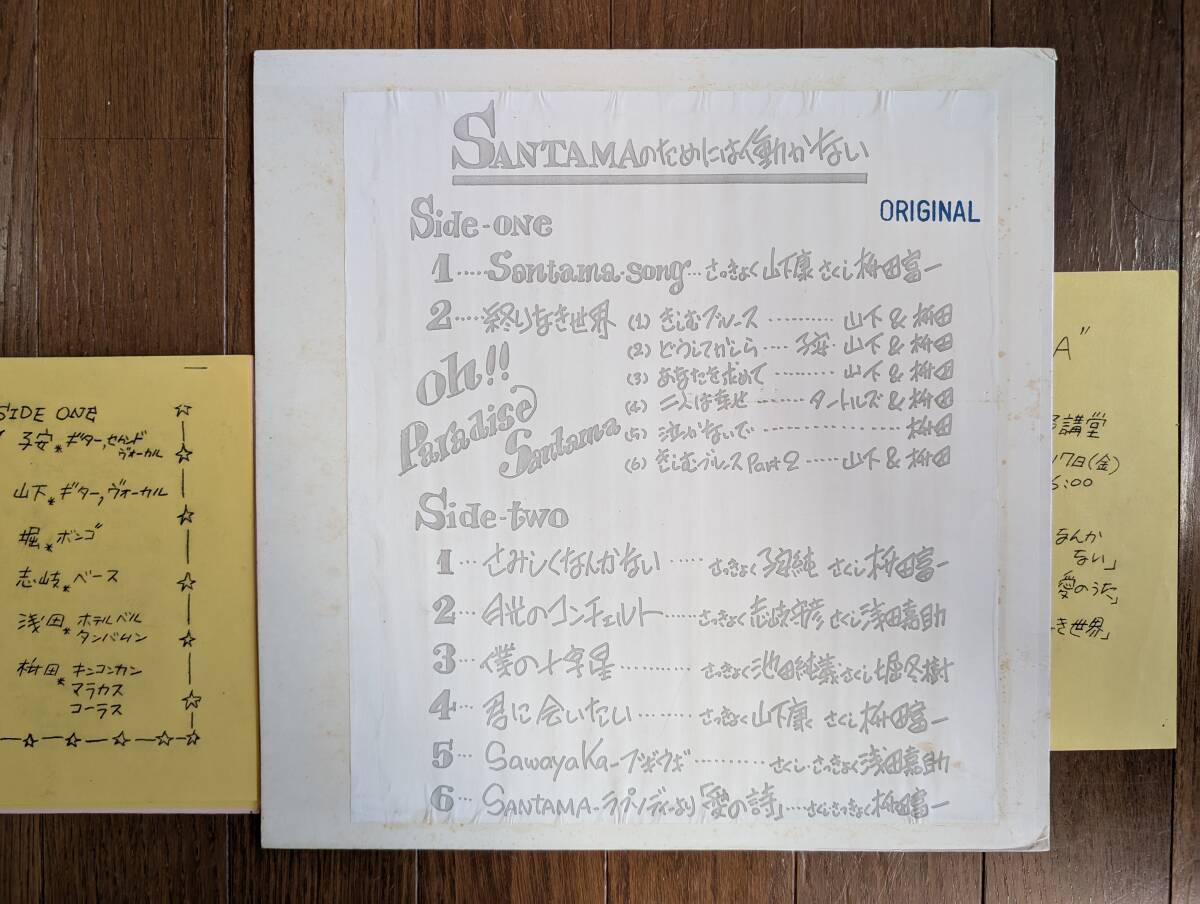 SANTAMAのためには働かない
ORIGINAL
Side-one
1.....Santama.song...さっきょく山下康 さくし 桝田富一
2....終りなき世界 (1) きしむブルース .......... 山下 & 桝田
(2) どうしてかしら .... 子安・山下 & 桝田
(3) あなたを求めて ......... 山下 & 桝田
(4) 二人は幸せ ........ タートルズ & 桝田
(5) 泣かないで .................... 桝田
(6) きしむブルース Part 2 ..... 山下 & 桝田
oh!!
Paradise
Santama
Side-two
1... さみしくなんかない ..... さっきょく 子安純 さくし 桝田富一
2... 月光のコンチェルト ..... さっきょく 志岐守彦 さくし 浅田嘉助
3... 僕の十字星 ........... さっきょく 池田純義 さくし 堀冬樹
4... 君に会いたい ........ さっきょく 山下康 さくし 桝田富一
5... SawayaKa-ブギウギ .......... さくし・さっきょく 浅田嘉助
6... SANTAMA-ラプソディーより「愛の詩」....さくしさっきょく 桝田富一
SIDE ONE
子安*ギター,セカンド
ヴォーカル
山下*ギター,ヴォーカル
堀*ボンゴ
志岐*ベース
浅田*ホテルベル
タンバリン
桝田*キンコンカン
マラカス
コーラス
A"
講堂
17日(金)
6:00
なんか
ない」
愛のうた」
き世界」